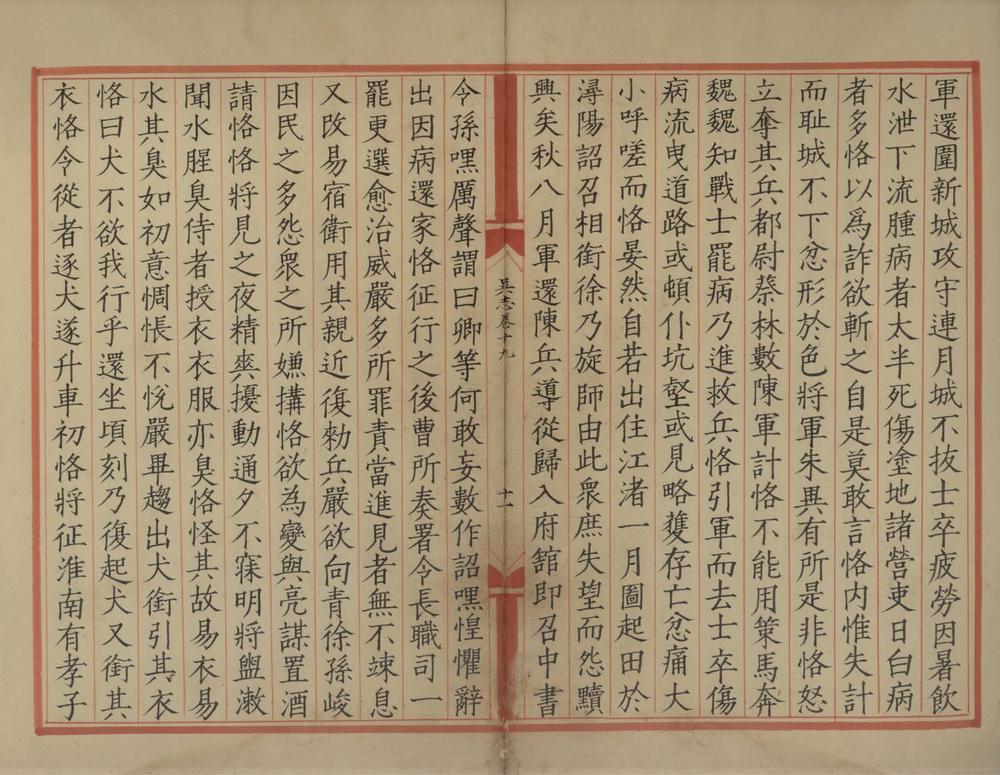 軍還圍新城攻守連月城不抜士卒疲勞因暑飲
水泄下流腫病者太半死傷塗地諸營吏日白病
者多恪以爲詐欲斬之自是莫敢言恪内惟失計
而耻城不下忿形於色將軍朱異有所是非恪怒
立奪其兵都尉蔡林數陳軍計恪不能用策馬奔
魏魏知戰士罷病乃進救兵恪引軍而去士卒傷
病流曳道路或頓仆坑壑或見略獲存亡忿痛大
小呼嗟而恪晏然自若出住江渚一月圖起田於
潯陽詔召相銜徐乃旋師由此衆庶失望而怨黷
興矣秋八月軍還陳兵導從歸入府舘即召中書
吳志卷十九
十一
令孫嘿厲聲謂曰卿等何敢妄數作詔嘿惶懼辭
出因病還家恪征行之後曹所奏署令長職司一
罷更選愈治威嚴多所罪責當進見者無不竦息
又改易宿衛用其親近復勑兵嚴欲向青徐孫峻
因民之多怨衆之所嫌搆恪欲為變與亮謀置酒
請恪恪將見之夜精爽擾動通夕不寐明將盥漱
聞水腥臭侍者授衣衣服亦臭恪怪其故易衣易
水其臭如初意惆悵不悅嚴畢趨出犬銜引其衣
恪曰犬不欲我行乎還坐頃刻乃復起犬又銜其
衣恪令從者逐犬遂升車初恪將征淮南有孝子